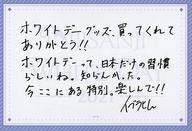 ホワイトデーグッズ、買ってくれて
ありがとう!!
ホワイトデーって、日本だけの習慣
らしいね。知らんかった。
今ここにある特別、楽しんで!!